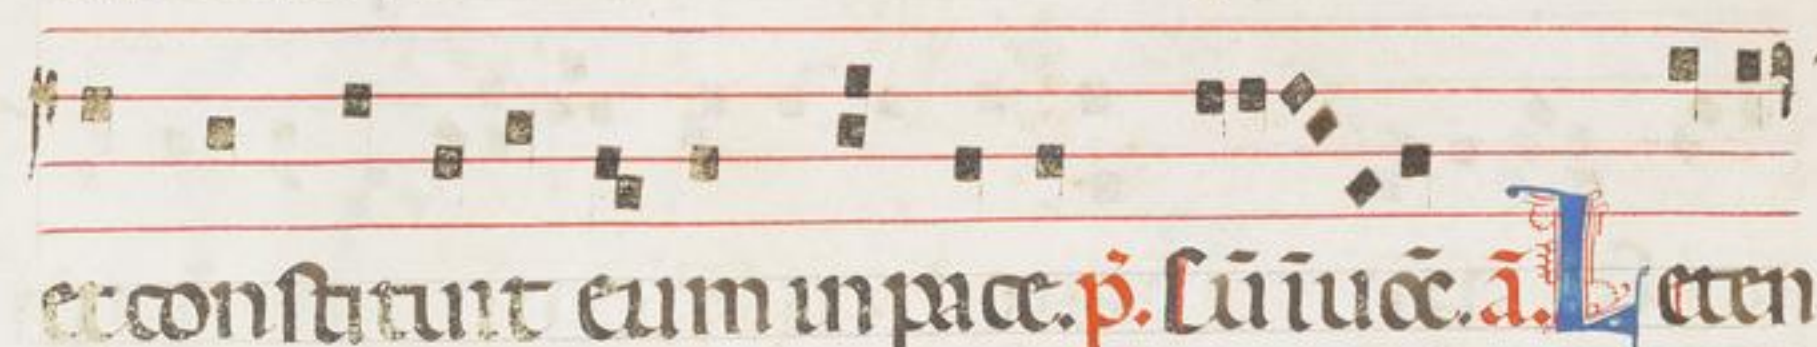 et constituit eum in pace. p̄. Cū īuoc̄. ā. Leten